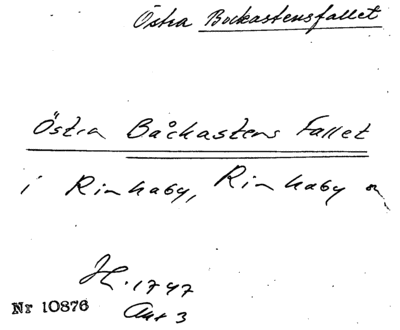 Östra Bockastensfallet
Östra Båckastens Fallet
i Rinkaby, Rinkaby
1747
Nr 10876
Akt 3